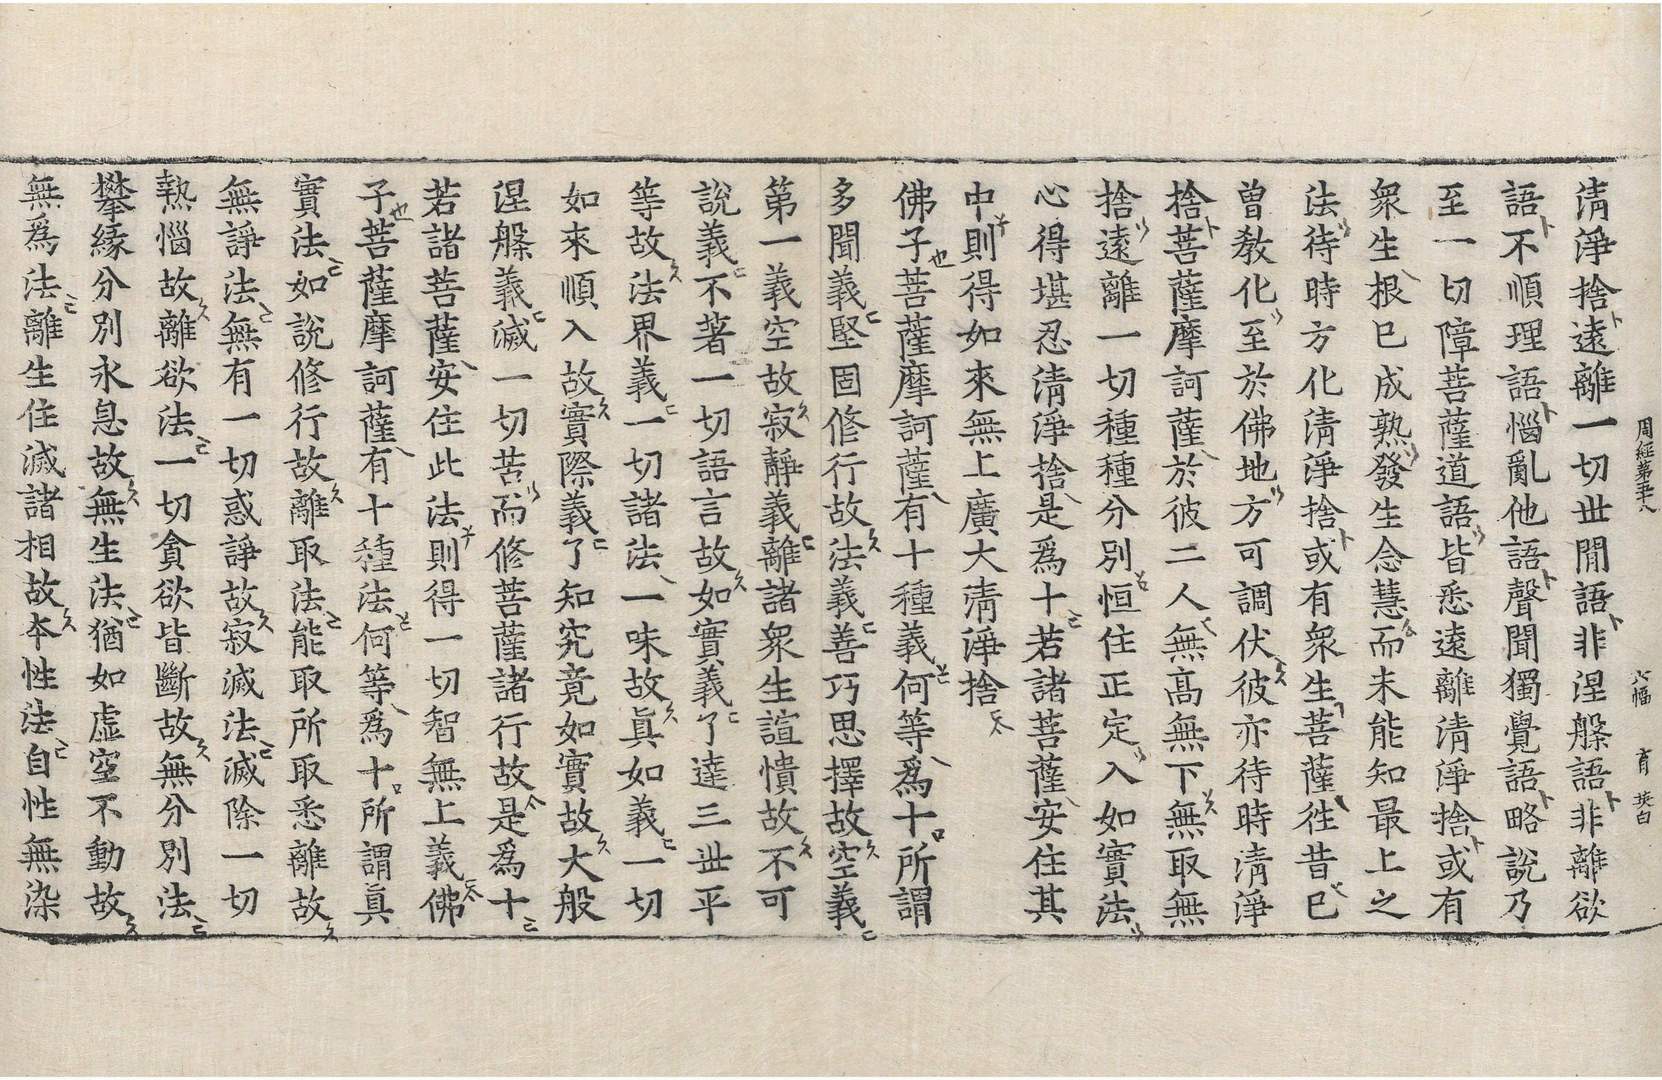 周經第五十八 八幅 育 英白
清淨捨遠離一切世間語非涅槃語非離欲
語不順理語惱亂他語聲聞獨覺語略說乃
至一切障菩薩道語皆悉遠離清淨捨或有
衆生根已成熟發生念慧而未能知最上之
法待時方化清淨捨或有衆生菩薩徃昔已
曽教化至於佛地方可調伏彼亦待時清淨
捨菩薩摩訶薩於彼二人無髙無下無取無
捨遠離一切種種分別恒住正定入如實法
心得堪忍清淨捨是爲十若諸菩薩安住其
中則得如來無上廣大清淨捨
佛子菩薩摩訶薩有十種義何等爲十所謂
多聞義堅固修行故法義善巧思擇故空義
第一義空故寂靜義離諸衆生諠憒故不可
說義不著一切語言故如實義了達三世平
等故法界義一切諸法一味故眞如義一切
如來順入故實際義了知究竟如實故大般
涅槃義滅一切苦而修菩薩諸行故是爲十
若諸菩薩安住此法則得一切智無上義佛
子菩薩摩訶薩有十種法何等爲十所謂眞
實法如說修行故離取法能取所取悉離故
無諍法無有一切惑諍故寂滅法滅除一切
熱惱故離欲法一切貪欲皆斷故無分別法
攀緣分別永息故無生法猶如虛空不動故
無爲法離生住滅諸相故本性法自性無染